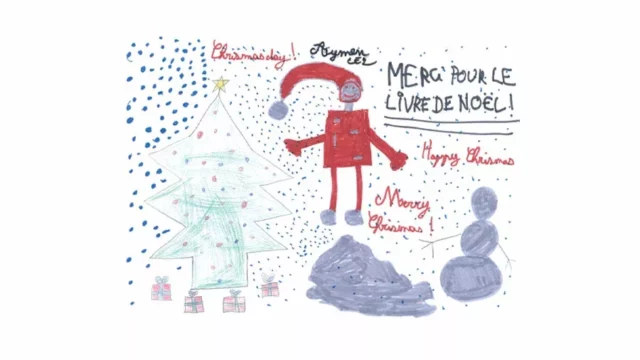 Chrismasday !
Aymen
CE2
MERCI POUR LE
LIVRE DE NOËL !
Happy Chrismas
Merry
Chrismas !